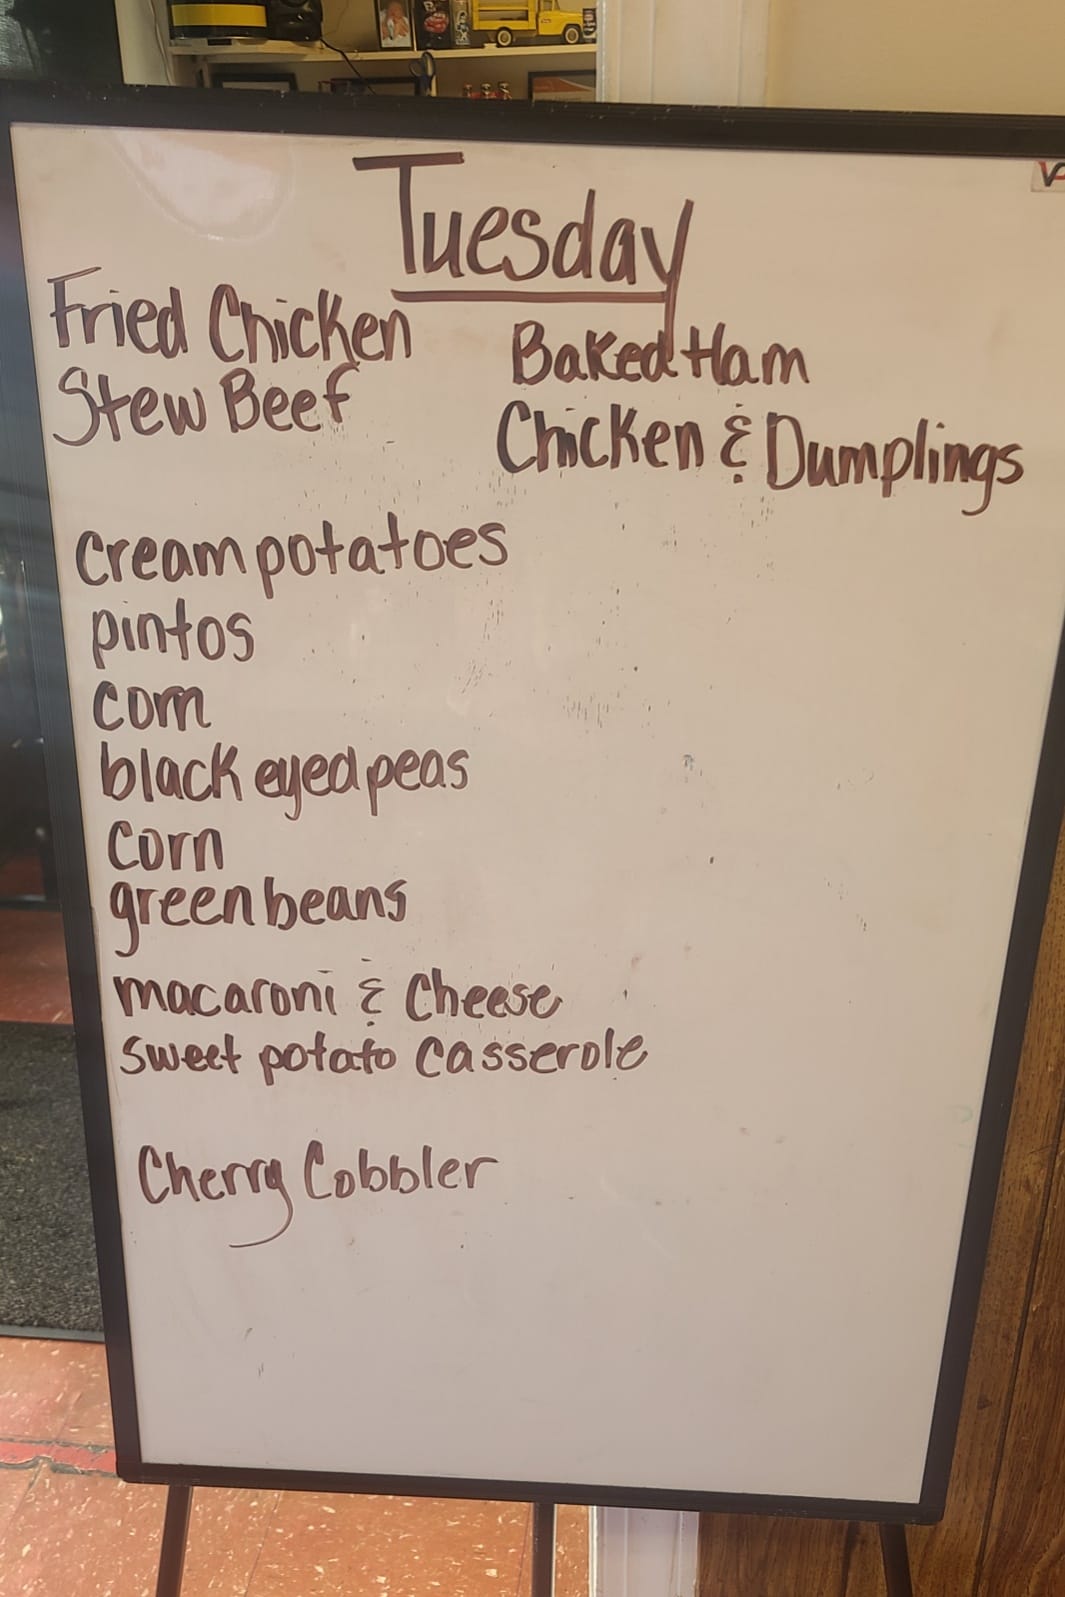 Tuesday
Fried Chicken
Stew Beef
Baked Ham
Chicken & Dumplings
cream potatoes
pintos
corn
black eyed peas
corn
green beans
macaroni & Cheese
sweet potato Casserole
Cherry Cobbler